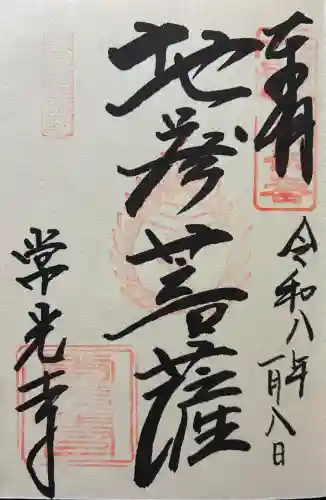 奉拝
令和八年
一月八日
地蔵菩薩
常光寺